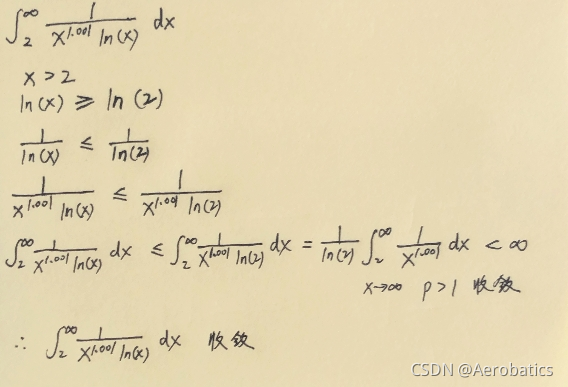 ∫₂^∞ 1/(x^1.001 ln(x)) dx
x > 2
ln(x) ≥ ln(2)
1/ln(x) ≤ 1/ln(2)
1/(x^1.001 ln(x)) ≤ 1/(x^1.001 ln(2))
∫₂^∞ 1/(x^1.001 ln(x)) dx ≤ ∫₂^∞ 1/(x^1.001 ln(2)) dx = 1/ln(2) ∫₂^∞ 1/x^1.001 dx < ∞
x→∞ p>1 收敛
∴ ∫₂^∞ 1/(x^1.001 ln(x)) dx 收敛
CSDN @Aerobatics